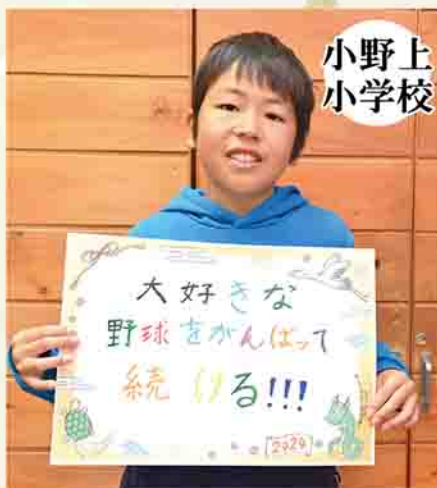 小野上
小学校
大好きな
野球をがんばって
続ける!!!
2024